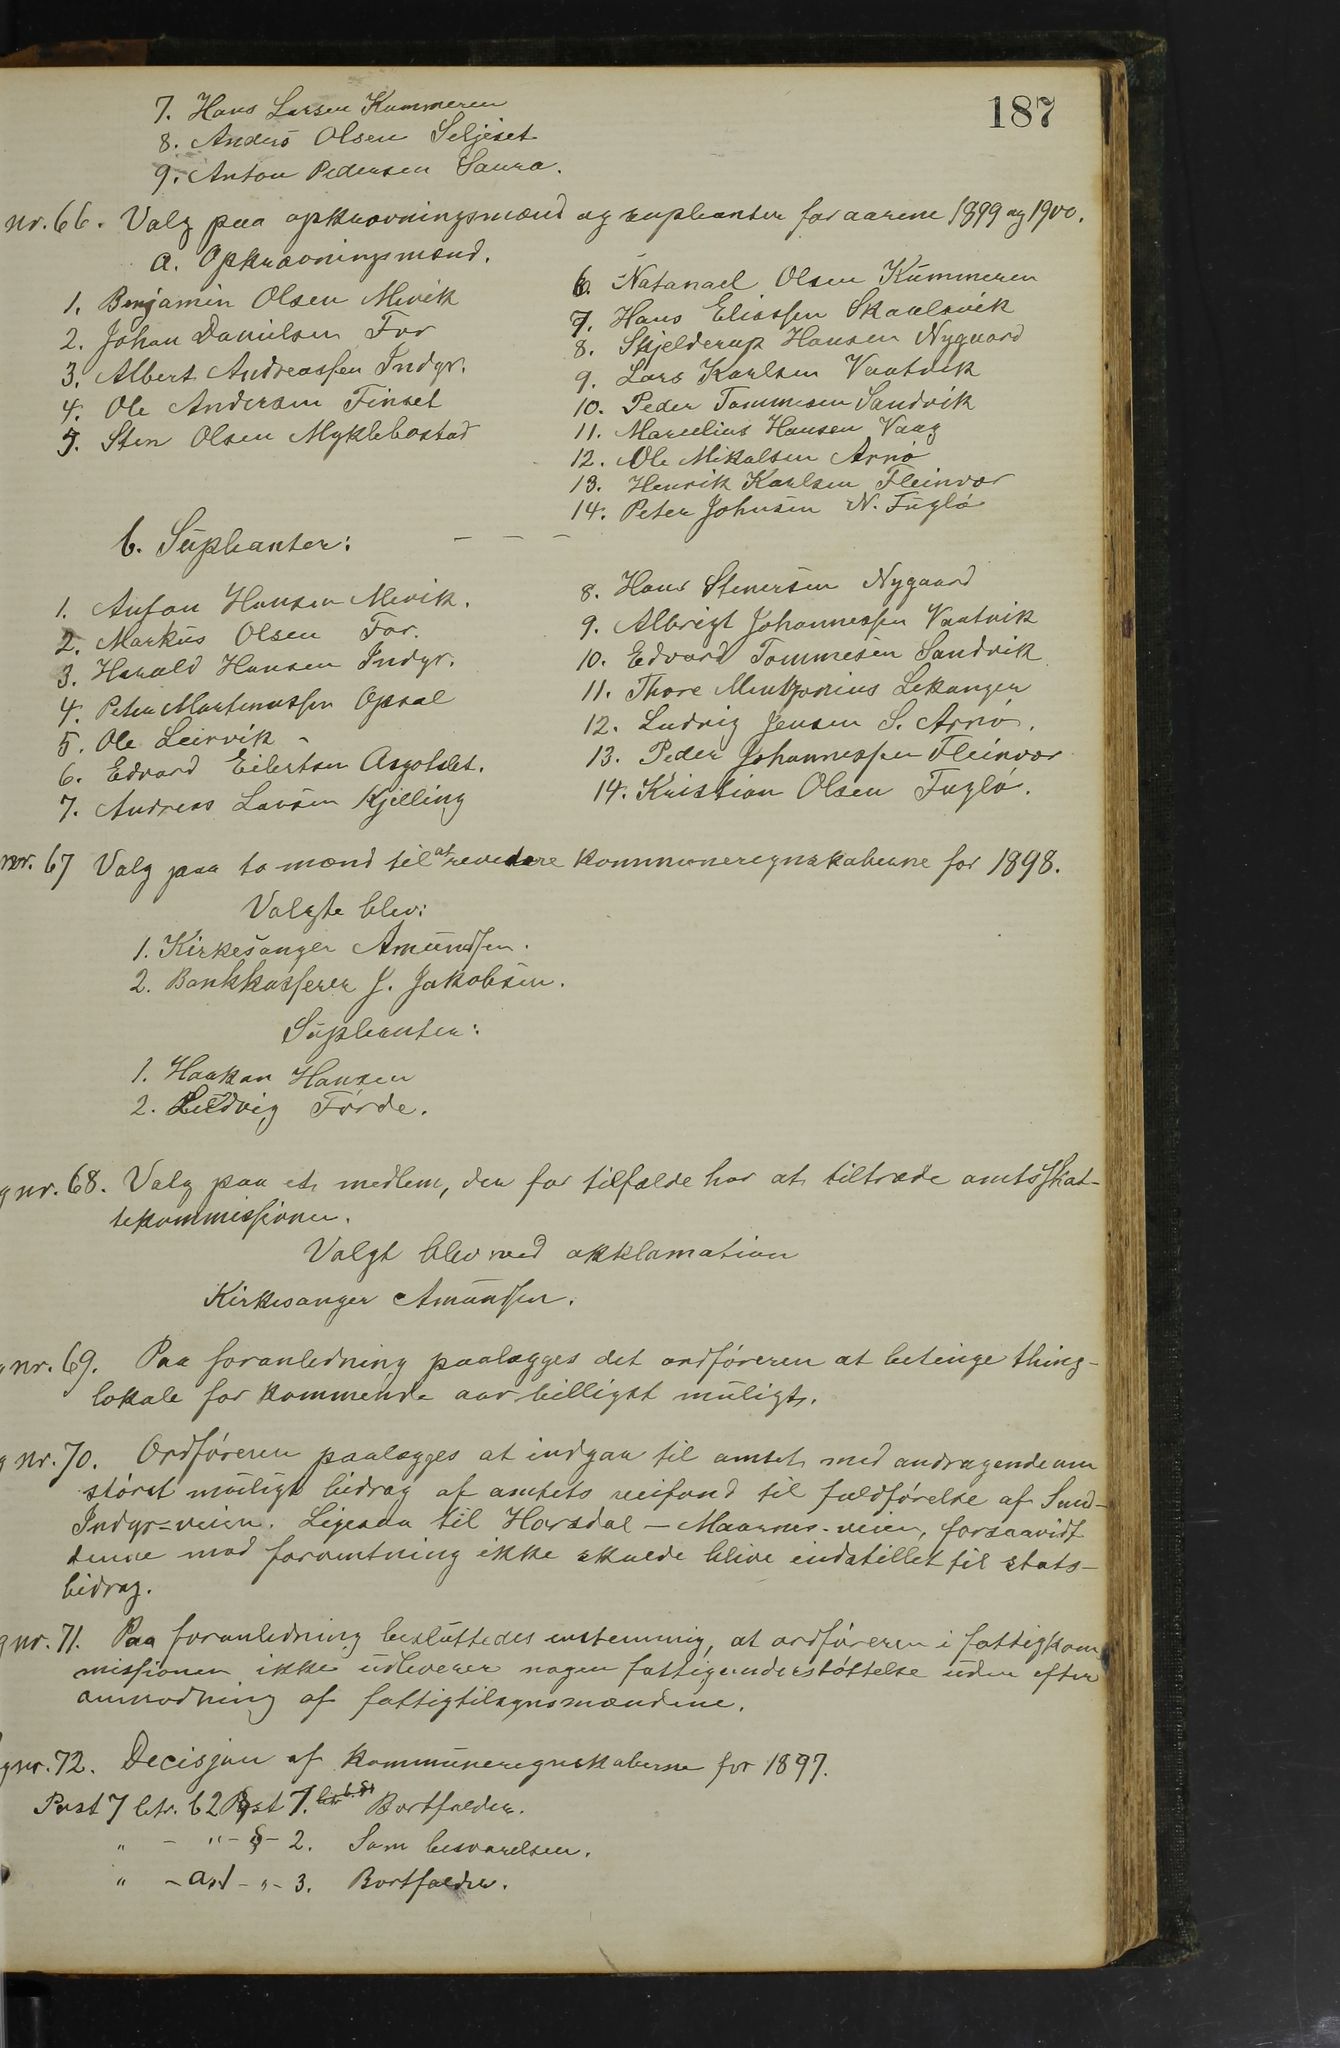 187
7. Hans Larsen Kummeren
8. Anders Olsen Seljeset
9. Anton Pedersen Saura.
nr. 66. Valg paa opkrævningsmænd og suplanter for aarene 1899 og 1900.
a. Opkrævningsmænd.
1. Benjamin Olsen Mevik
2. Johan Danielsen For
3. Albert Andreassen Indyr.
4. Ole Andersen Finset
5. Sten Olsen Myklebostad
6. Natanael Olsen Kummeren
7. Hans Eliassen Skaalsvik
8. Skjelderup Hansen Nygaard
9. Lars Karlsen Vaatvik
10. Peder Tommesen Sandvik
11. Marselius Hansen Vaag
12. Ole Mikalsen Arnø
13. Henrik Karlsen Fleinvær
14. Peter Johnsen N. Fuglø
b. Suplanter: – – –
1. Anton Hansen Mevik.
2. Markus Olsen For.
3. Harald Hansen Indyr.
4. Peter Martinussen Opsal
5. Ole Leirvik
6. Edvard Eilertsen Asgotslet.
7. Andreas Larsen Kjelling
8. Hans Stenersen Nygaard
9. Albrigt Johannessen Vaatvik
10. Edvard Tommesen Sandvik
11. Thore Lekanger
12. Ludvig Jensen S. Arnø.
13. Peder Johannessen Fleinvær
14. Kristian Olsen Fuglø.
nr. 67 Valg paa to mænd til at revidere kommuneregnskaberne for 1898.
Valgte blev:
1. Kirkesanger Amundsen.
2. Bankkasserer J. Jakobsen.
Suplanter:
1. Haakon Hansen
2. Ludvig Førde.
g nr. 68. Valg paa et medlem, der for tilfælde har at tiltræde amtsskat-
tekommissionen.
Valgt blev ved akklamation
Kirkesanger Amundsen.
g nr. 69. Paa foranledning paalægges det ordføreren at betinge thing-
lokale for kommende aar billigst muligt.
g nr. 70. Ordføreren paalægges at indgaa til amtet med andragende om
størst muligt bidrag af amtets veifond til fuldførelse af Sund-
Indyr-veien. Ligesaa til Horsdal – Maarnes-veien, forsaavidt
denne mod formodning ikke skulde blive indstillet til stats-
bidrag.
g nr. 71. Paa foranledning besluttedes enstemmig, at ordføreren i fattigkom
missionen ikke udleverer nogen fattigunderstøttelse uden efter
anmodning af fattigtilsynsmændene.
g nr. 72. Decisjon af kommuneregnskaberne for 1897.
Post 7 litr. b 2 Post 1. Bortfalder.
" – " – § – 2. Som besvarelsen.
" – – " – 3. Bortfalder.